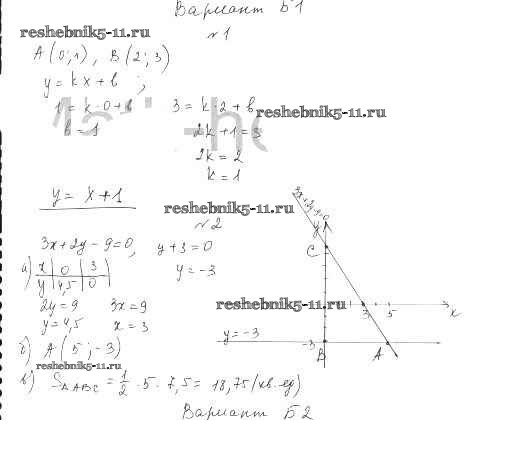 Вариант Б1
reshebnik5-11.ru
№1
A(0;1), B(2;3)
y = kx + b;
1 = k·0 + b
b = 1
3 = k·2 + b
reshebnik5-11.ru
2k + 1 = 3
2k = 2
k = 1
y = x + 1
reshebnik5-11.ru
№2
3x + 2y - 9 = 0, y + 3 = 0
а) x | 0 | 3
y | 4,5 | 0
y = -3
2y = 9 3x = 9
y = 4,5 x = 3
б) A(5; -3)
reshebnik5-11.ru
в) S△ABC = 1/2 · 5 · 7,5 = 18,75 (кв. ед)
3x+2y-9=0
y
C
reshebnik5-11.ru
3 5 x
y = -3
-3
B A
Вариант Б2